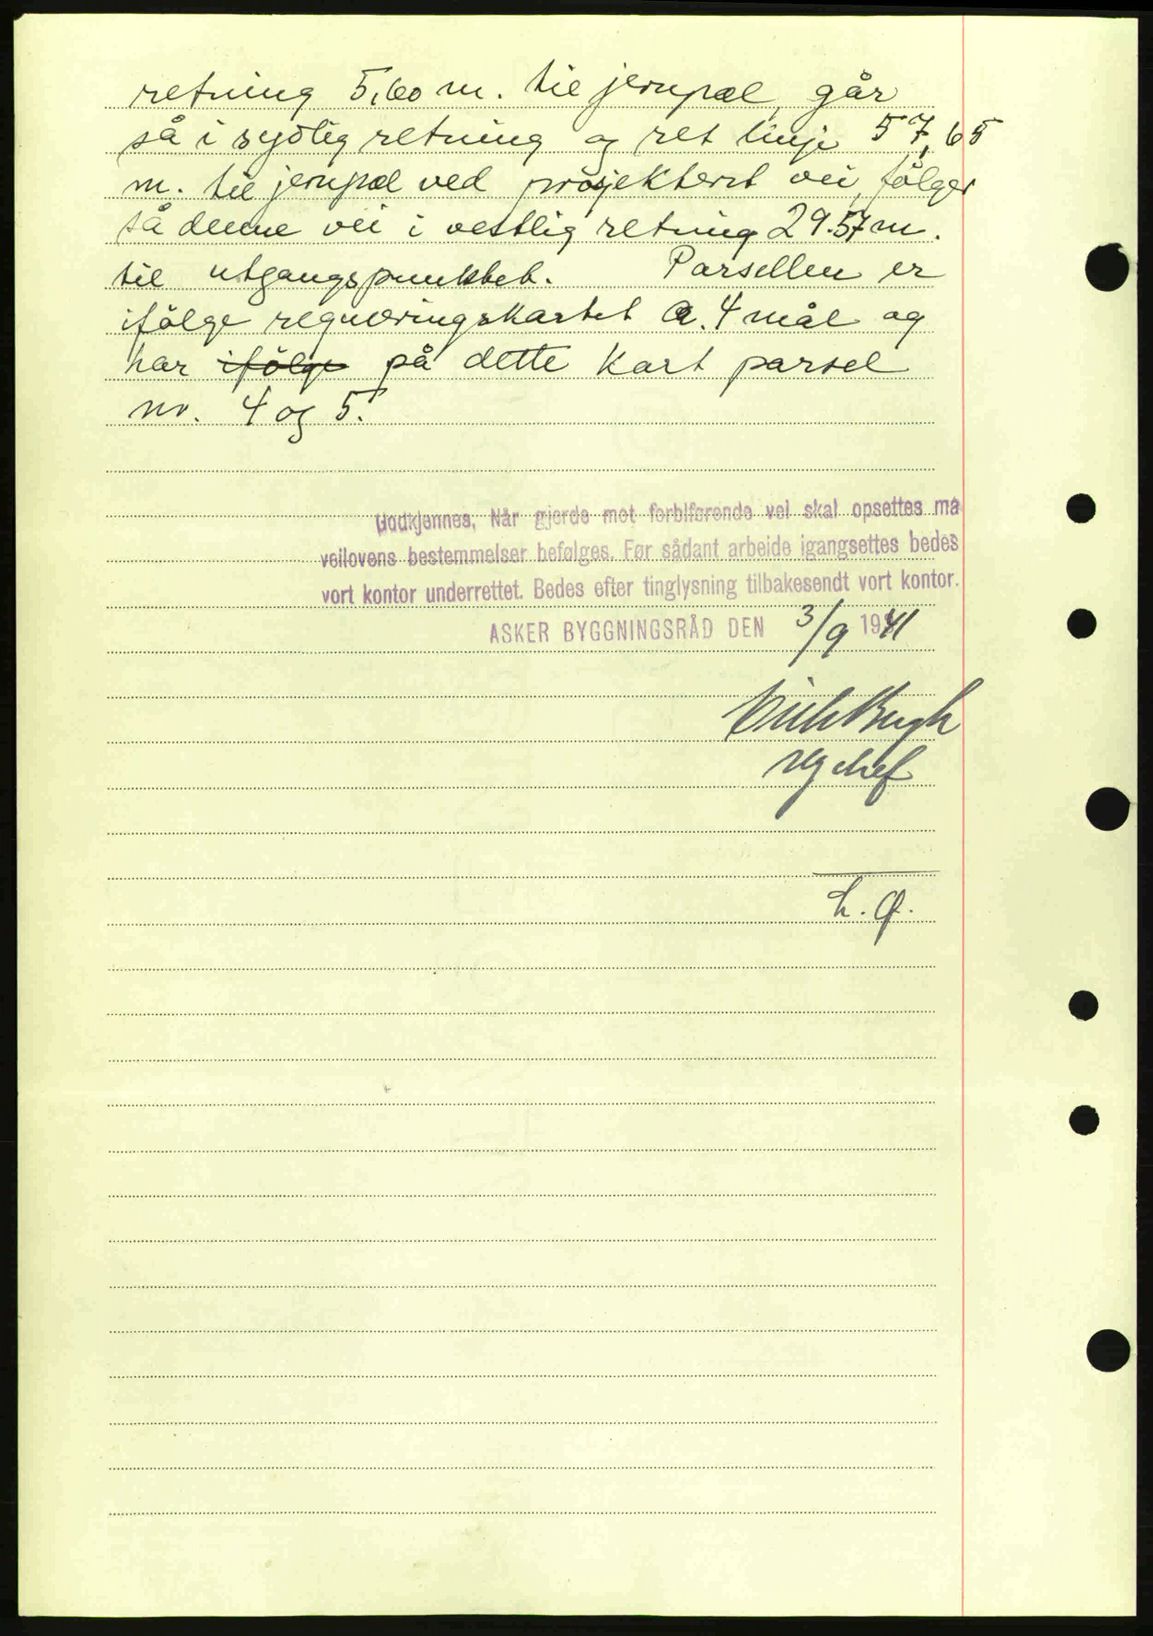 retning 5,60 m. til jernpæl, går
så i sydlig retning og ret linje 57,65
m. til jernpæl ved prosjektert vei, følger
så denne vei i vestlig retning 29.57 m.
til utgangspunktet. Parsellen er
ifölge reguleringskartet a. 4 mål og
har ifölge på dette kart parsel
nr. 4 og 5.
Godkjennes, Når gjerde mot forbiførende vei skal opsettes må
veilovens bestemmelser befølges. Før sådant arbeide igangsettes bedes
vort kontor underrettet. Bedes efter tinglysning tilbakesendt vort kontor.
ASKER BYGGNINGSRÅD DEN 3/9 1941
reg chef